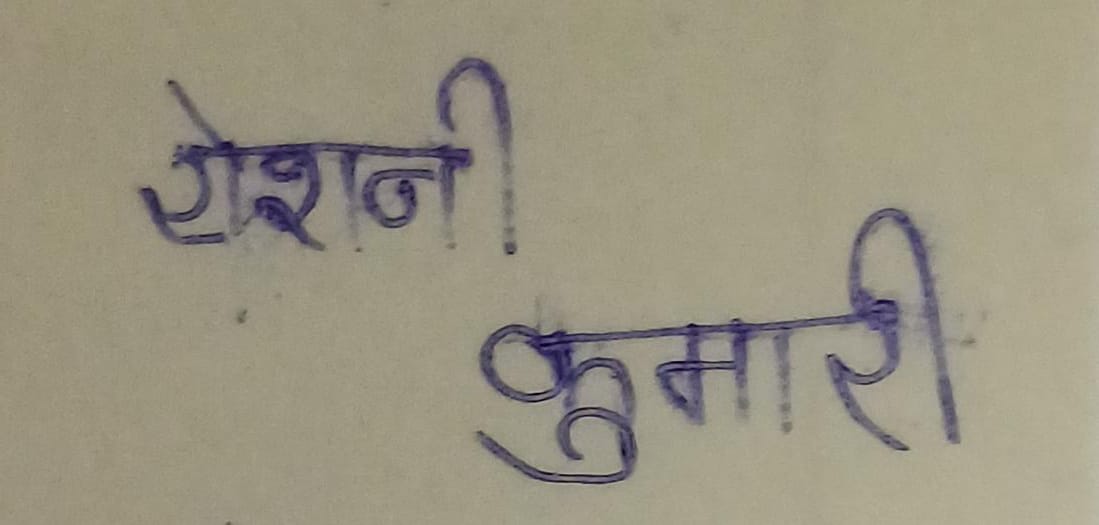 रोशनी
कुमारी